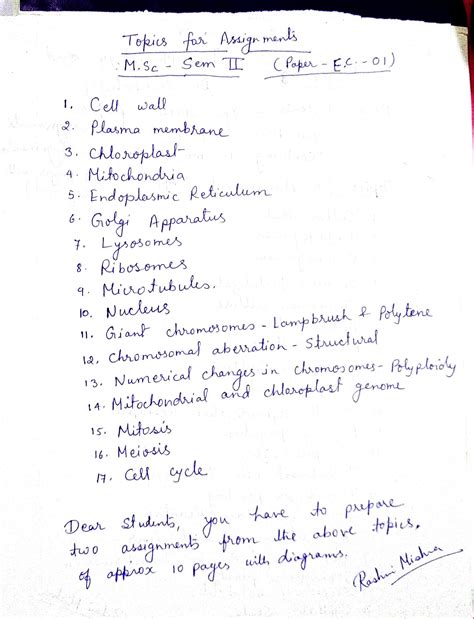 Topics for Assignments
M.Sc - Sem II (Paper - E.C. - 01)
1. Cell wall
2. Plasma membrane
3. Chloroplast
4. Mitochondria
5. Endoplasmic Reticulum
6. Golgi Apparatus
7. Lysosomes
8. Ribosomes
9. Microtubules.
10. Nucleus
11. Giant chromosomes - Lampbrush & Polytene
12. Chromosomal aberration - Structural
13. Numerical changes in chromosomes - Polyploidy
14. Mitochondrial and chloroplast genome
15. Mitosis
16. Meiosis
17. Cell cycle
Dear Students, you have to prepare
two assignments from the above topics,
of approx 10 pages with diagrams.
Rashmi Mishra